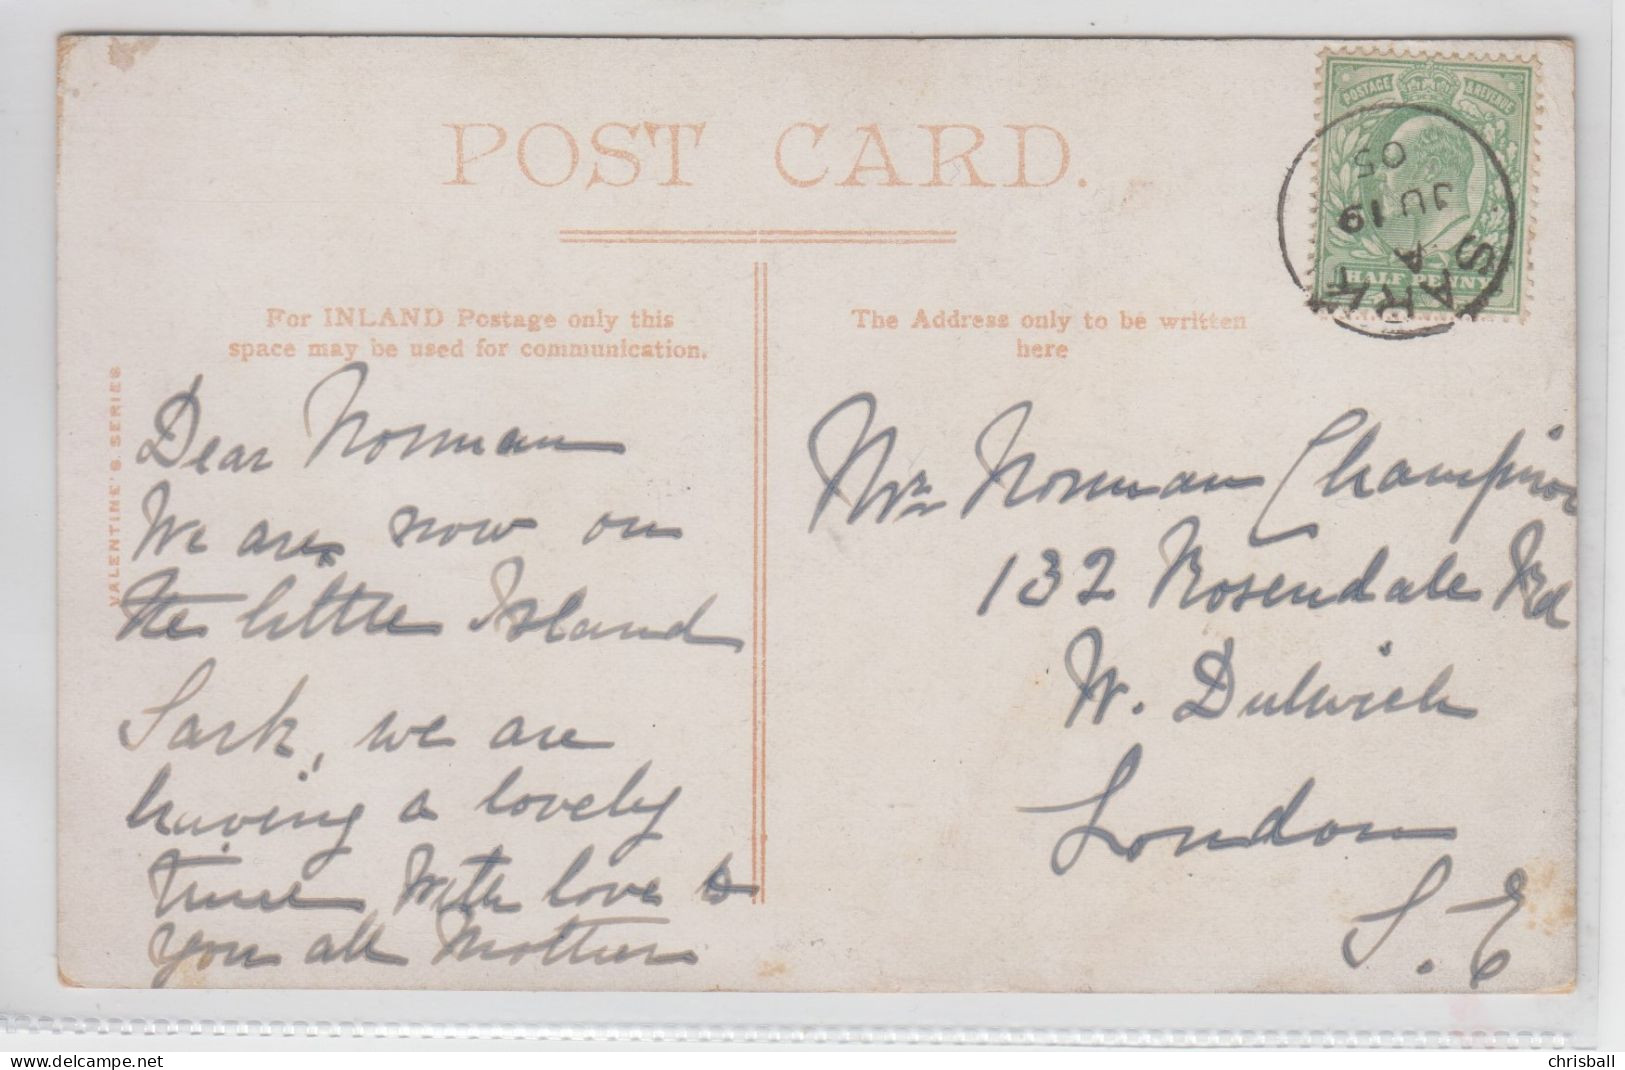 POST CARD.
For INLAND Postage only this
space may be used for communication.
The Address only to be written
here
VALENTINE'S SERIES
POSTAGE & REVENUE
HALF PENNY
SARK
A
JU 19
05
Dear Norman
We are now on
the little Island
Sark, we are
having a lovely
time With love to
you all Mother
Mr Norman Champion
132 Rosendale Rd
W. Dulwich
London
S. E
chrisball